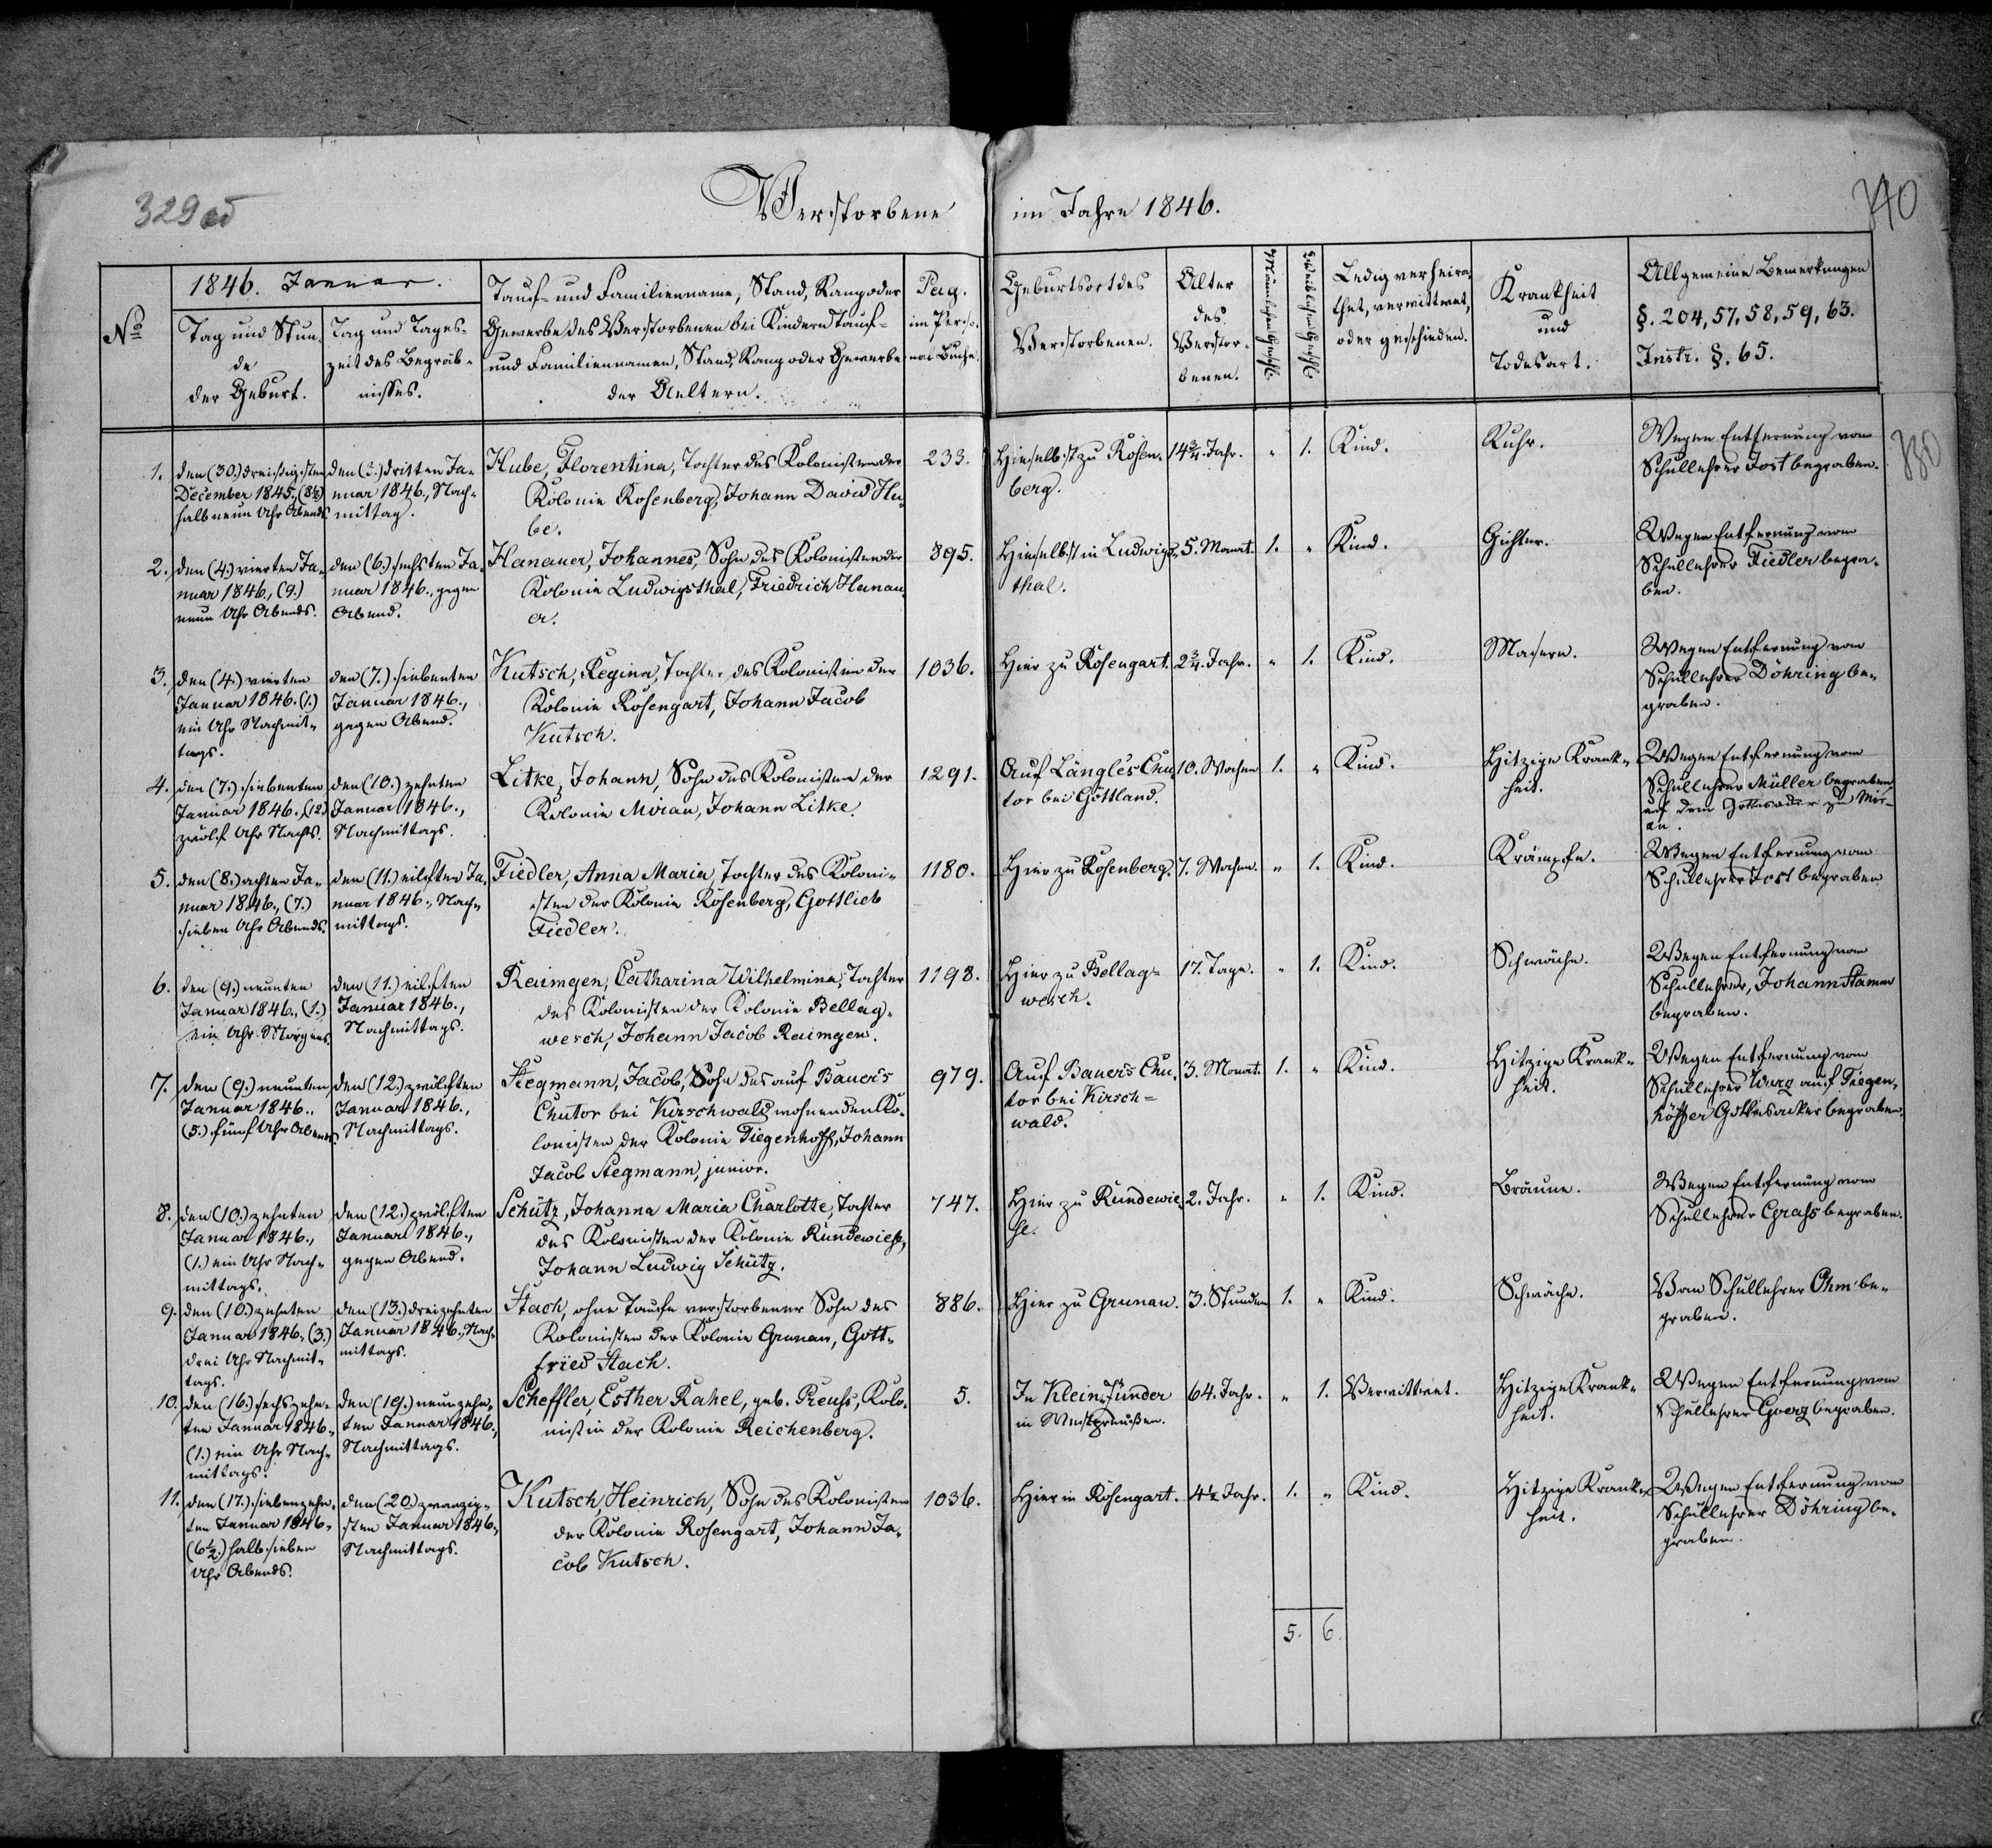 329 об
340
330
Verstorbene im Jahre 1846.
No
1846. Januar.
Tag und Stun-
de
der Geburt.
Tag und Tages-
zeit des Begräb-
nisses.
Tauf- und Familienname, Stand, Rang oder
Gewerbe des Verstorbenen bei Kindern Tauf-
und Familiennamen, Stand, Rang oder Gewerbe
der Aeltern.
Pag.
im Perso-
nal Buche.
Geburtsort des
Verstorbenen.
Alter
des
Verstor-
benen.
Männlichen Geschl.
Weiblichen Geschl.
Ledig verheira-
thet, verwittwet,
oder geschieden.
Krankheit
und
Todesart.
Allgemeine Bemerkungen
§. 204, 57, 58, 59, 63.
Instr. §. 65.
1.
den (30.) dreißigsten
December 1845. (8½)
halb neun Uhr Abends
den (3.) dritten Ja-
nuar 1846., Nach-
mittag.
Hube, Florentina, Tochter des Kolonisten der
Kolonie Rosenberg, Johann David Hu-
be.
233.
Hieselbst zu Rosen-
berg.
14¾. Jahr.
"
1.
Kind.
Ruhr.
Wegen Entfernung vom
Schullehrer Jost begraben.
2.
den (4.) vierten Ja-
nuar 1846., (9.)
neun Uhr Abends.
den (6.) sechsten Ja-
nuar 1846., gegen
Abend.
Hanauer, Johannes, Sohn des Kolonisten der
Kolonie Ludwigsthal, Friedrich Hanau-
er.
895.
Hieselbst in Ludwigs-
thal.
5. Monat.
1.
"
Kind.
Gichter.
Wegen Entfernung vom
Schullehrer Fiedler begra-
ben.
3.
den (4.) vierten
Januar 1846. (1.)
ein Uhr Nachmit-
tags.
den (7.) siebenten
Januar 1846.,
gegen Abend.
Kutsch, Regina, Tochter des Kolonisten der
Kolonie Rosengart, Johann Jacob
Kutsch.
1036.
Hier zu Rosengart.
2¾. Jahr.
"
1.
Kind.
Masern.
Wegen Entfernung vom
Schullehrer Döhring be-
graben.
4.
den (7.) siebenten
Januar 1846., (12.)
zwölf Uhr Nachts.
den (10.) zehnten
Januar 1846.,
Nachmittags.
Litke, Johann, Sohn des Kolonisten der
Kolonie Mirau, Johann Litke.
1291.
Auf Längle's Chu-
tor bei Göttland.
10. Wochen
1.
"
Kind.
Hitzige Krank-
heit.
Wegen Entfernung vom
Schullehrer Müller begraben
auf dem Gottesacker zu Mir-
au.
5.
den (8.) achten Ja-
nuar 1846., (7.)
sieben Uhr Abends.
den (11.) eilften Ja-
nuar 1846., Nach-
mittags.
Fiedler, Anna Maria, Tochter des Koloni-
sten der Kolonie Rosenberg, Gottlieb
Fiedler.
1180.
Hier zu Rosenberg.
7. Wochen.
"
1.
Kind.
Krämpfe.
Wegen Entfernung vom
Schullehrer Jost begraben
6.
den (9.) neunten
Januar 1846., (1.)
ein Uhr Morgens.
den (11.) eilften
Januar 1846.,
Nachmittags.
Reimgen, Catharina Wilhelmina, Tochter
des Kolonisten der Kolonie Bellag-
wesch, Johann Jacob Reimgen.
1198.
Hier zu Bellag-
wesch.
17. Tage.
"
1.
Kind.
Schwäche.
Wegen Entfernung vom
Schullehrer, Johann Stamm
begraben.
7.
den (9.) neunten
Januar 1846.,
(5.) fünf Uhr Abends
den (12.) zwölften
Januar 1846.,
Nachmittags.
Stegmann, Jacob, Sohn des auf Bauer's
Chutor bei Kirschwald wohnenden Ko-
lonisten der Kolonie Tiegenhoff, Johann
Jacob Stegmann, junior.
979.
Auf Bauer's Chu-
tor bei Kirsch-
wald.
3. Monat.
1.
"
Kind.
Hitzige Krank-
heit.
Wegen Entfernung vom
Schullehrer Wurz auf Tiegen-
höffer Gottesacker begraben.
8.
den (10.) zehnten
Januar 1846.,
(1.) ein Uhr Nach-
mittags.
den (12.) zwölften
Januar 1846.,
gegen Abend.
Schütz, Johanna Maria Charlotte, Tochter
des Kolonisten der Kolonie Rundewiese,
Johann Ludwig Schütz.
747.
Hier zu Rundewie-
se.
2. Jahr.
"
1.
Kind.
Bräune.
Wegen Entfernung vom
Schullehrer Grahs begraben.
9.
den (10.) zehnten
Januar 1846., (3.)
drei Uhr Nachmit-
tags.
den (13.) dreizehnten
Januar 1846., Nach-
mittags.
Stach, ohne Taufe verstorbener Sohn des
Kolonisten der Kolonie Grunau, Gott-
fried Stach.
886.
Hier zu Grunau.
3. Stunden
1.
"
Kind.
Schwäche.
Vom Schullehrer Ohm be-
graben.
10.
den (16.) sechszehn-
ten Januar 1846.,
(1.) ein Uhr Nach-
mittags.
den (19.) neunzehn-
ten Januar 1846.,
Nachmittags.
Scheffler, Esther Rahel, geb. Preuss, Kolo-
nistin der Kolonie Reichenberg.
5.
In Klein Zünder
in Westpreußen.
64. Jahr.
"
1.
Verwittwet.
Hitzige Krank-
heit.
Wegen Entfernung vom
Schullehrer Goerz begraben.
11.
den (17.) siebenzehn-
ten Januar 1846.,
(6½.) halb sieben
Uhr Abends.
den (20.) zwanzig-
sten Januar 1846.,
Nachmittags.
Kutsch, Heinrich, Sohn des Kolonisten
der Kolonie Rosengart, Johann Ja-
cob Kutsch.
1036.
Hier in Rosengart.
4½ Jahr.
1.
"
Kind.
Hitzige Krank-
heit.
Wegen Entfernung vom
Schullehrer Döhring be-
graben.
5.
6.